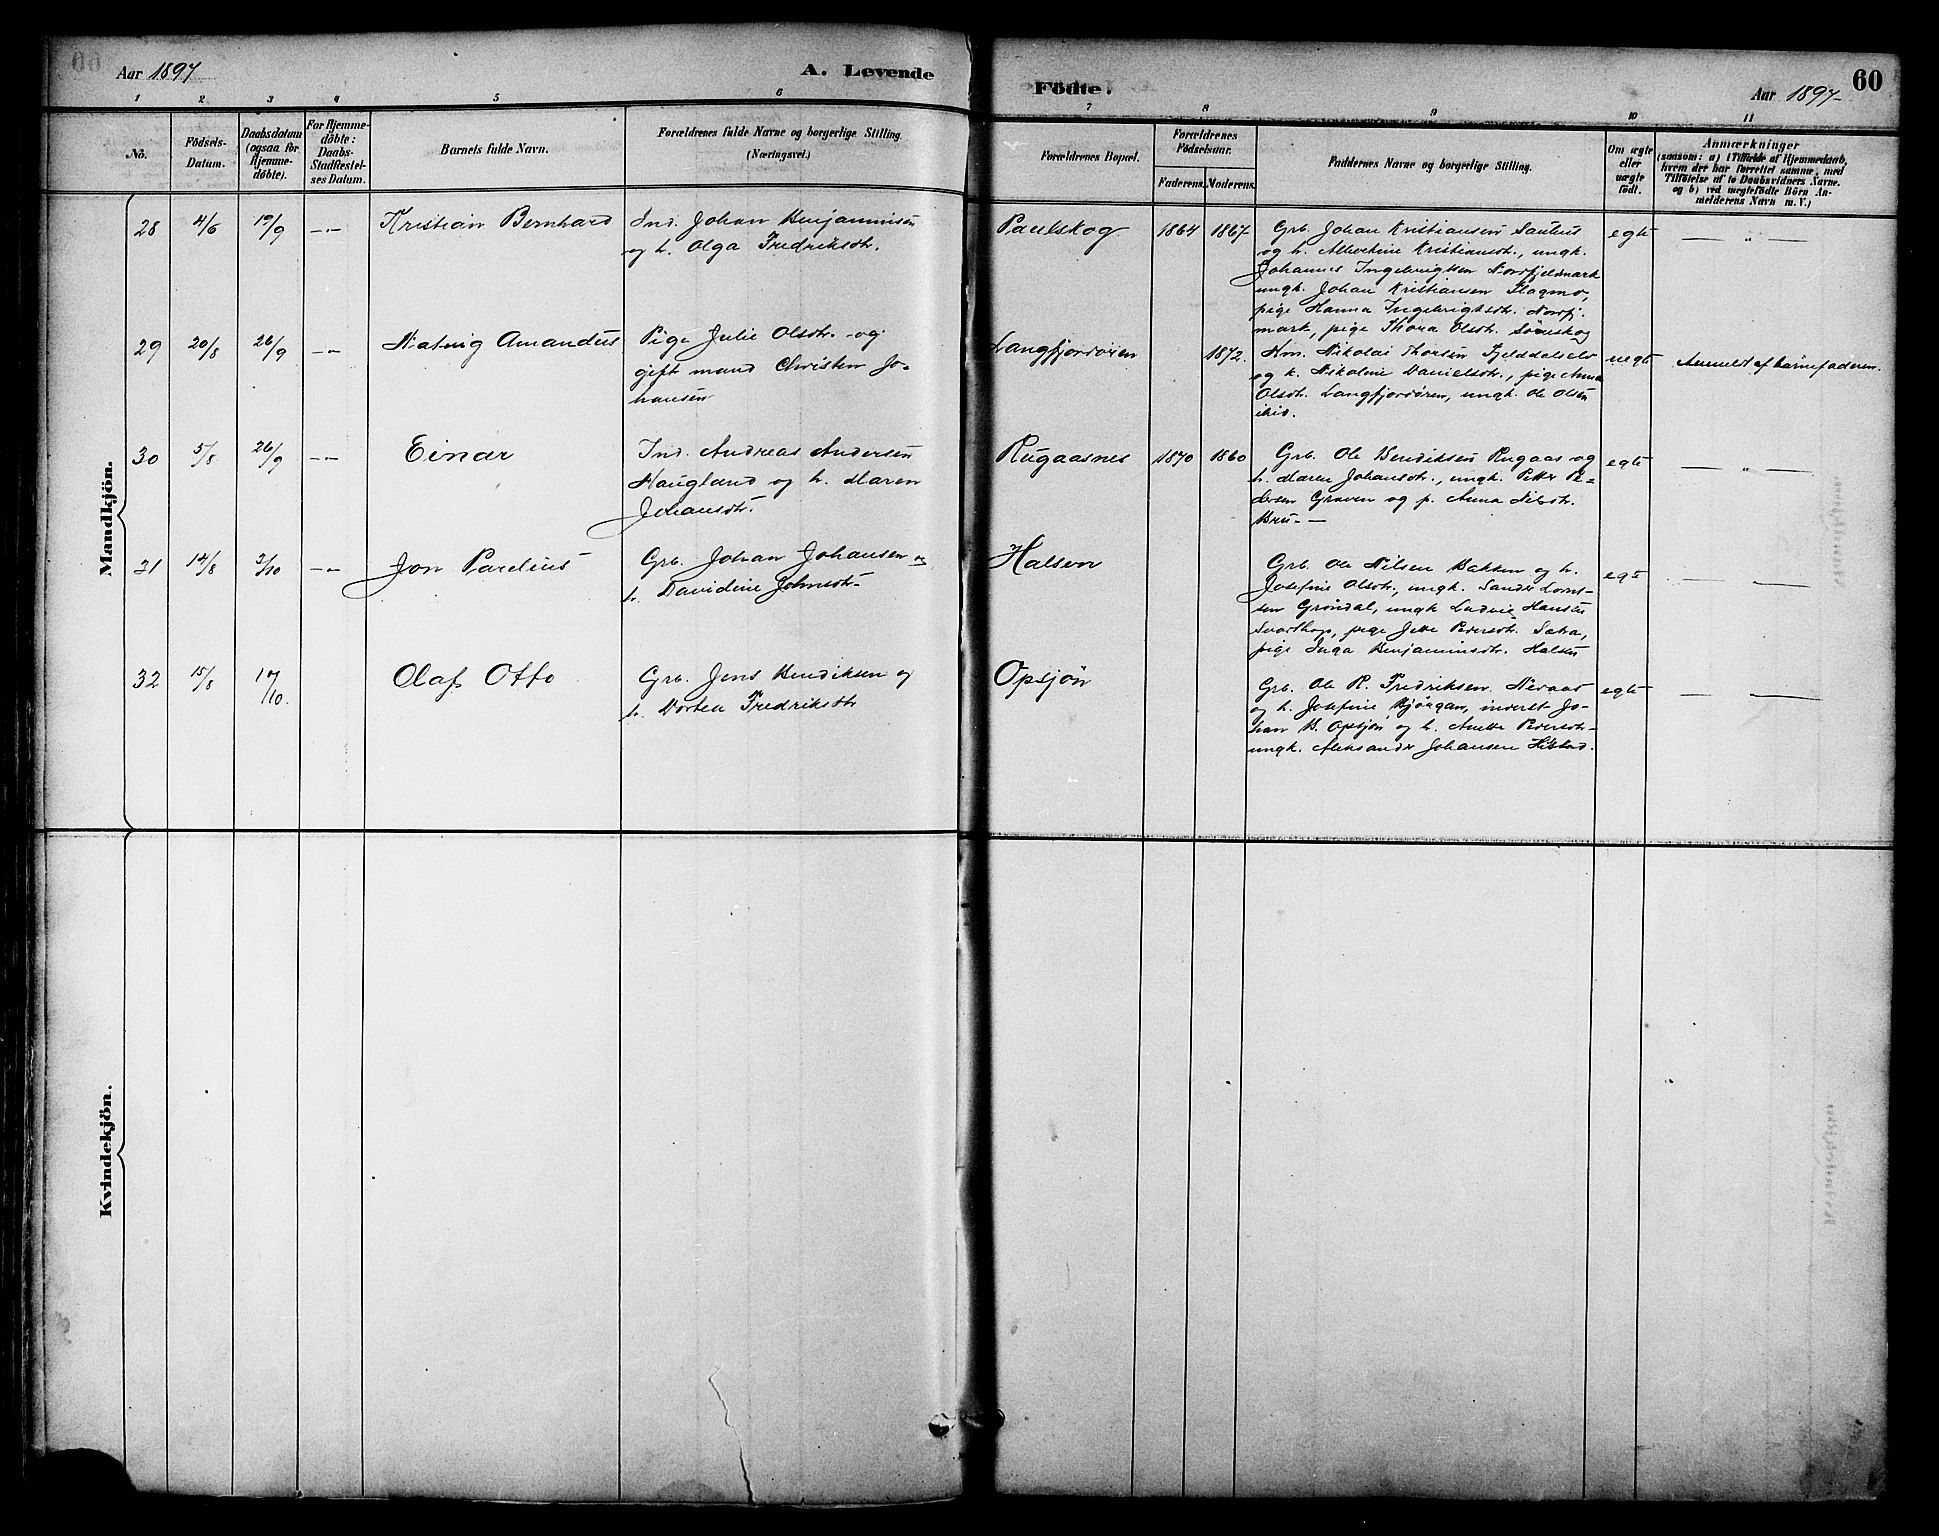 Aar 1897
A. Levende
Födte.
Aar 1897
60
1 2 3 4 5 6 7 8 9 10 11
No.
Födsels-
Datum.
Daabsdatum
(ogsaa for
Hjemme-
döbte).
For Hjemme-
döbte:
Daabs-
Stadfæstel-
ses Datum.
Barnets fulde Navn.
Forældrenes fulde Navne og borgerlige Stilling.
(Næringsvei.)
Forældrenes Bopæl.
Forældrenes
Födselsaar.
Faderens. Moderens.
Faddernes Navne og borgerlige Stilling.
Om ægte
eller
uægte
födt.
Anmærkninger
(saasom: a) i Tilfælde af Hjemmedaab,
hvem der har forrettet samme, med
Tilföielse af to Daabsvidners Navne.
og b) ved uægtefödte Börn An-
melderens Navn m. V.)
Mandkjön.
28 4/6 19/9 -"- Kristian Bernhard
Ind. Johan Benjaminsen
og h. Olga Fredriksdtr.
Paulskog 1864 1867
Grb. Johan Kristiansen
og h. Albertine Kristiansdtr., ungk.
Johannes Ingebrigtsen Nordfjeldmark
ungk. Johan Kristiansen Flagmo,
pige Hanna Ingebrigtsdtr. Nordfj.
mark, pige Thora Olsdtr. Söneskog
egte — " —
29 20/8 26/9 -"- Hatvig Amandus
Pige Julie Olsdtr. og
gift mand Christen Jo-
hansen
Langfjordören 1872.
Hm. Nikolai Thorsen
og h. Nikoline Danielsdtr., pige Anna
Olsdtr. Langfjordören, ungk. Ole Olsen
ibid.
uegte Anmeldt af barnefaderen.
30 5/8 26/9 -"- Einar
Ind. Andreas Andersen
Haugland og h. Maren
Johansdtr.
Rugaasnes 1870 1860
Grb. Ole Bendiksen Rugaas og
h. Maren Johansdtr., ungk. Petter Pe-
dersen Graven og p. Anna Nilsdtr.
Bru. —
egte — " —
31 14/8 3/10 -"- Jon Parelius
Grb. Johan Johansen og
h. Davidine Johnsdtr.
Halsen
Grb. Ole Nilsen Bakken og h.
Josefine Olsdtr., ungk. Sander Lorns-
sen Gröndal, ungk. Ludvig Hansen
pige Jette Pedersdtr.
pige Inga Benjaminsdtr. Halsen
egte — —
32 15/8 10/10. Olaf Otto
Grb. Jens Bendiksen og
h. Dortea Fredriksdtr
Opsjön
Grb. Ole R. Fredriksen
og h. Josefine Björgan, inderst Jo-
han B. Opsjön og h. Anette Pedersdtr.
ungk. Aleksander Johansen Hilstad.
egte — —
Kvindekjön.